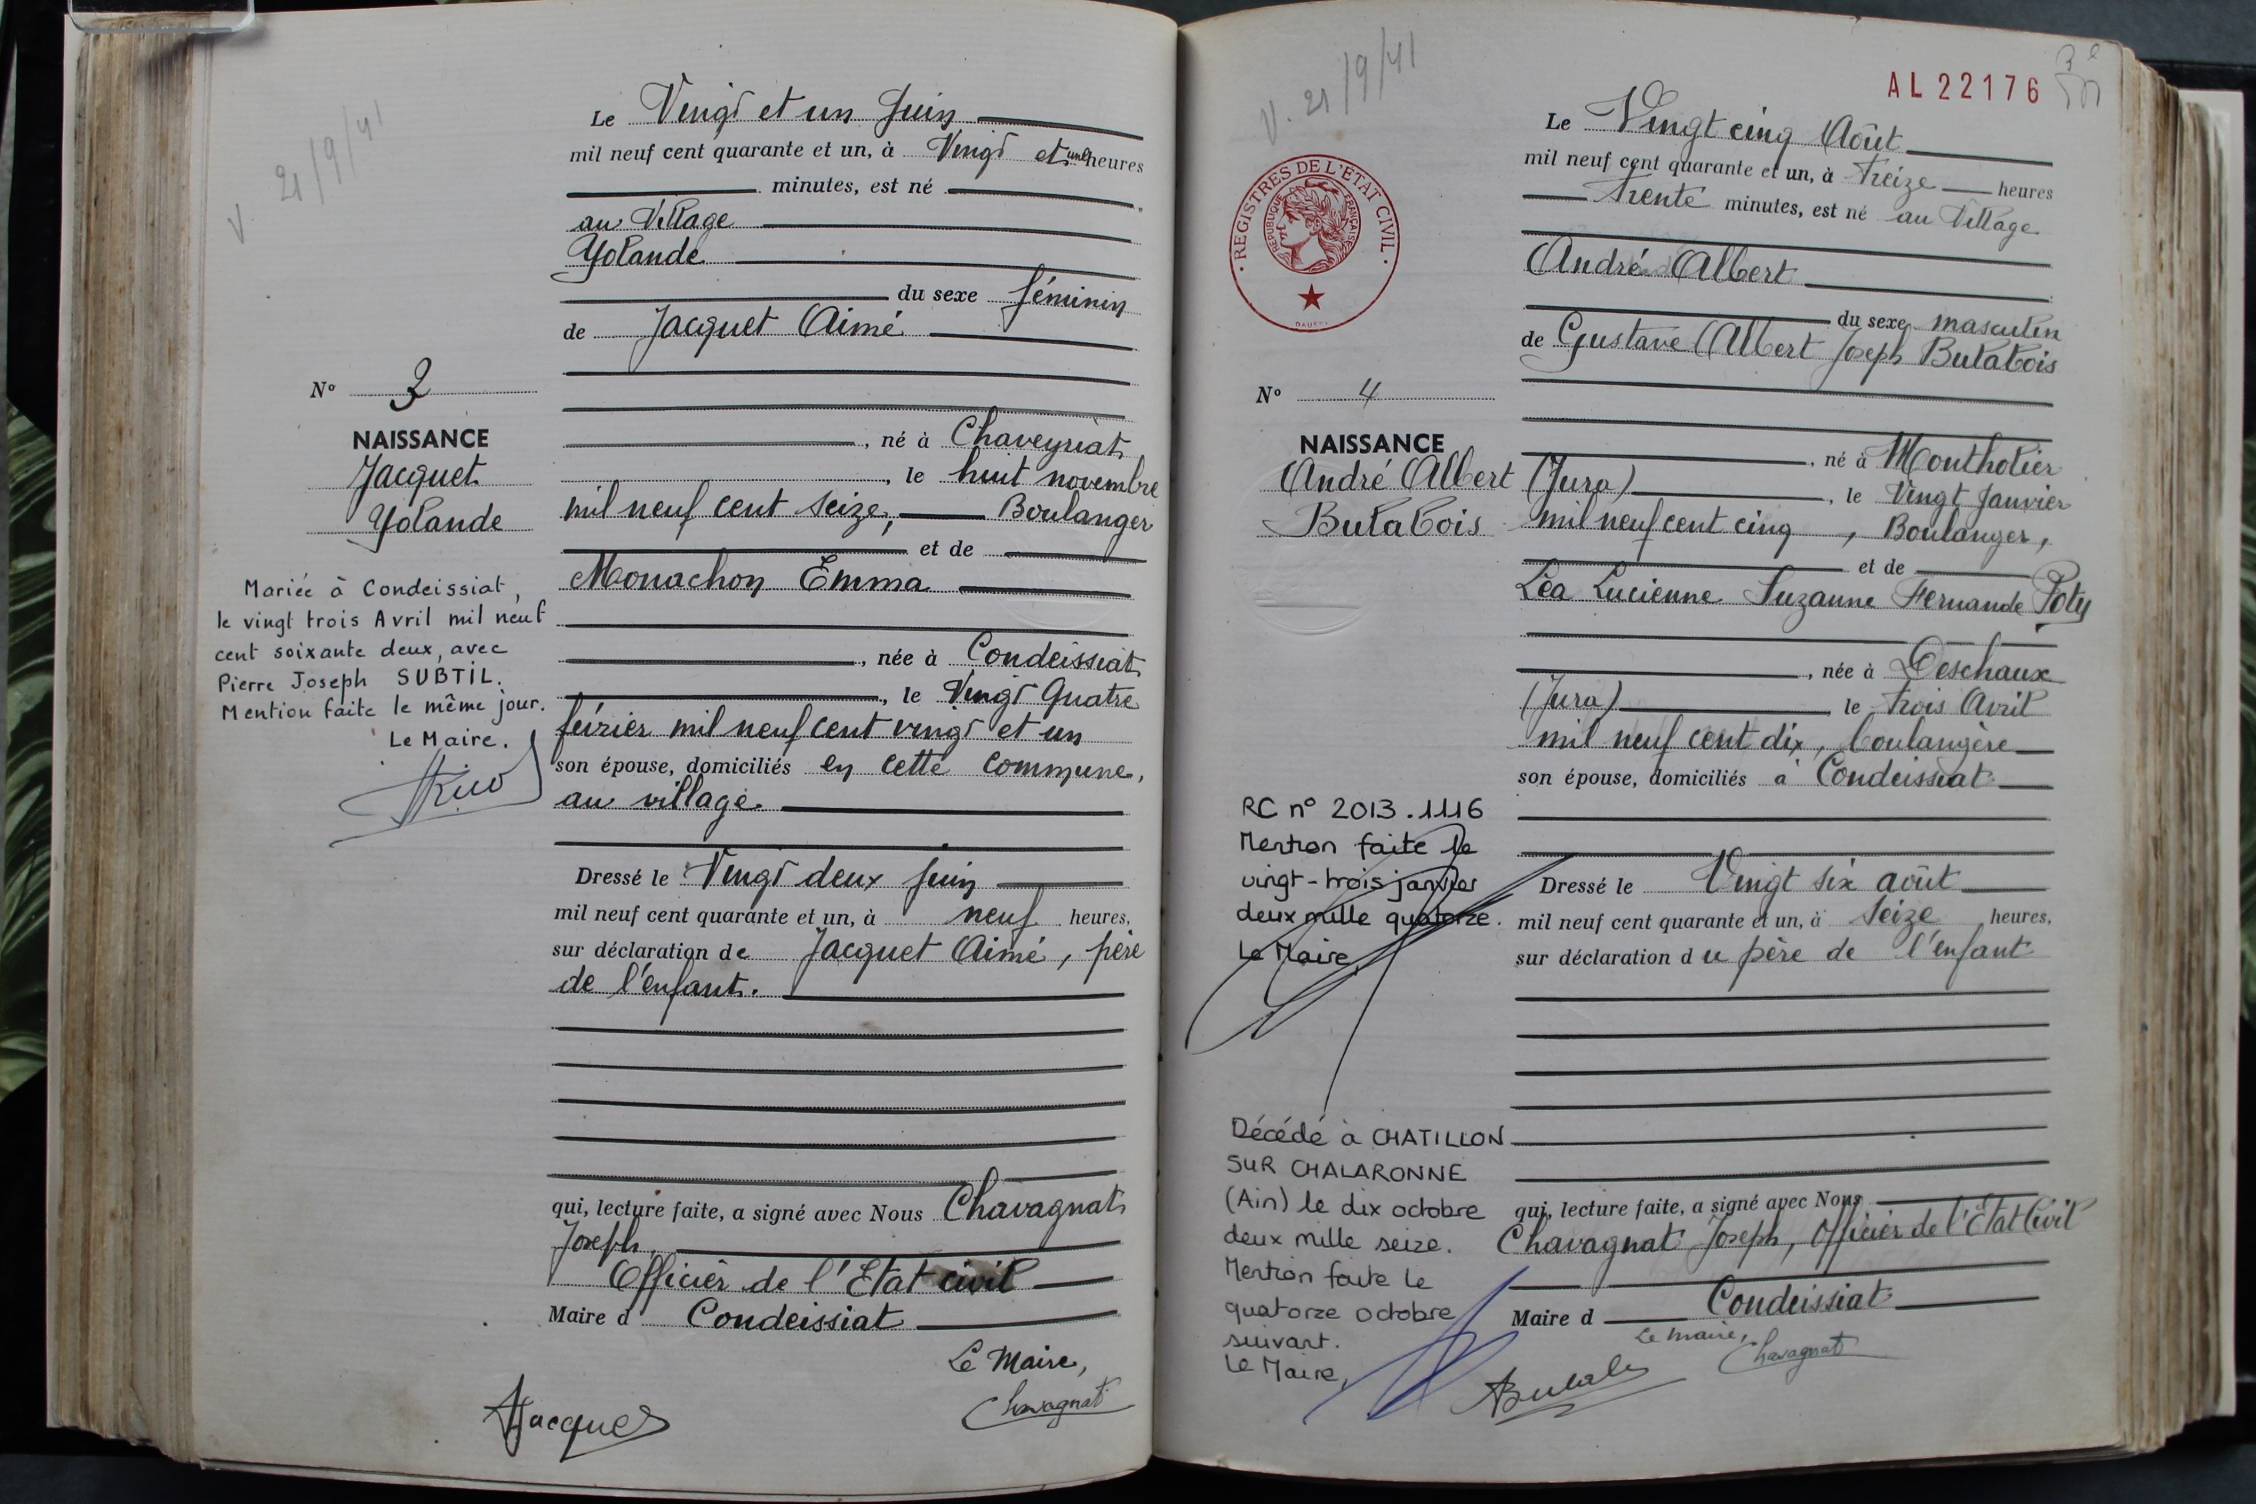 V. 21/9/41
Le Vingt et un Juin
mil neuf cent quarante et un, à Vingt et une heures
minutes, est né
au Village
Yolande
du sexe féminin
de Jacquet Aimé
N° 3
NAISSANCE
Jacquet
Yolande
, né à Chaveyriat
, le huit novembre
mil neuf cent seize, Boulanger
et de
Monachon Emma
, née à Condeissiat
, le Vingt Quatre
février mil neuf cent vingt et un
son épouse, domiciliés en cette commune,
au village.
Mariée à Condeissiat,
le vingt trois Avril mil neuf
cent soixante deux, avec
Pierre Joseph SUBTIL.
Mention faite le même jour.
Le Maire.
Dressé le Vingt deux juin
mil neuf cent quarante et un, à neuf heures,
sur déclaration de Jacquet Aimé, père
de l'enfant.
qui, lecture faite, a signé avec Nous Chavagnat
Joseph,
Officier de l'Etat civil
Maire d Condeissiat
Le Maire,
Chavagnat
AJacquet
V. 21/9/41
AL 22176
REGISTRES DE L'ETAT CIVIL
REPUBLIQUE FRANÇAISE
Le Vingt cinq Août
mil neuf cent quarante et un, à treize heures
trente minutes, est né au Village
André Albert
du sexe masculin
de Gustave Albert Joseph Butabois
N° 4
NAISSANCE
André Albert
Butabois
, né à Montholier
(Jura) , le Vingt Janvier
mil neuf cent cinq, Boulanger,
et de
Léa Lucienne Suzanne Fernande Poty
, née à Deschaux
(Jura) le trois Avril
mil neuf cent dix, boulangère
son épouse, domiciliés à Condeissiat
RC n° 2013.1116
Mention faite le
vingt-trois janvier
deux mille quatorze.
Le Maire,
Dressé le Vingt six août
mil neuf cent quarante et un, à seize heures,
sur déclaration du père de l'enfant
Décédé à CHATILLON
SUR CHALARONNE
(Ain) le dix octobre
deux mille seize.
Mention faite le
quatorze octobre
suivant.
Le Maire,
qui, lecture faite, a signé avec Nous
Chavagnat Joseph, Officier de l'Etat Civil
Maire d Condeissiat
Le Maire,
Chavagnat